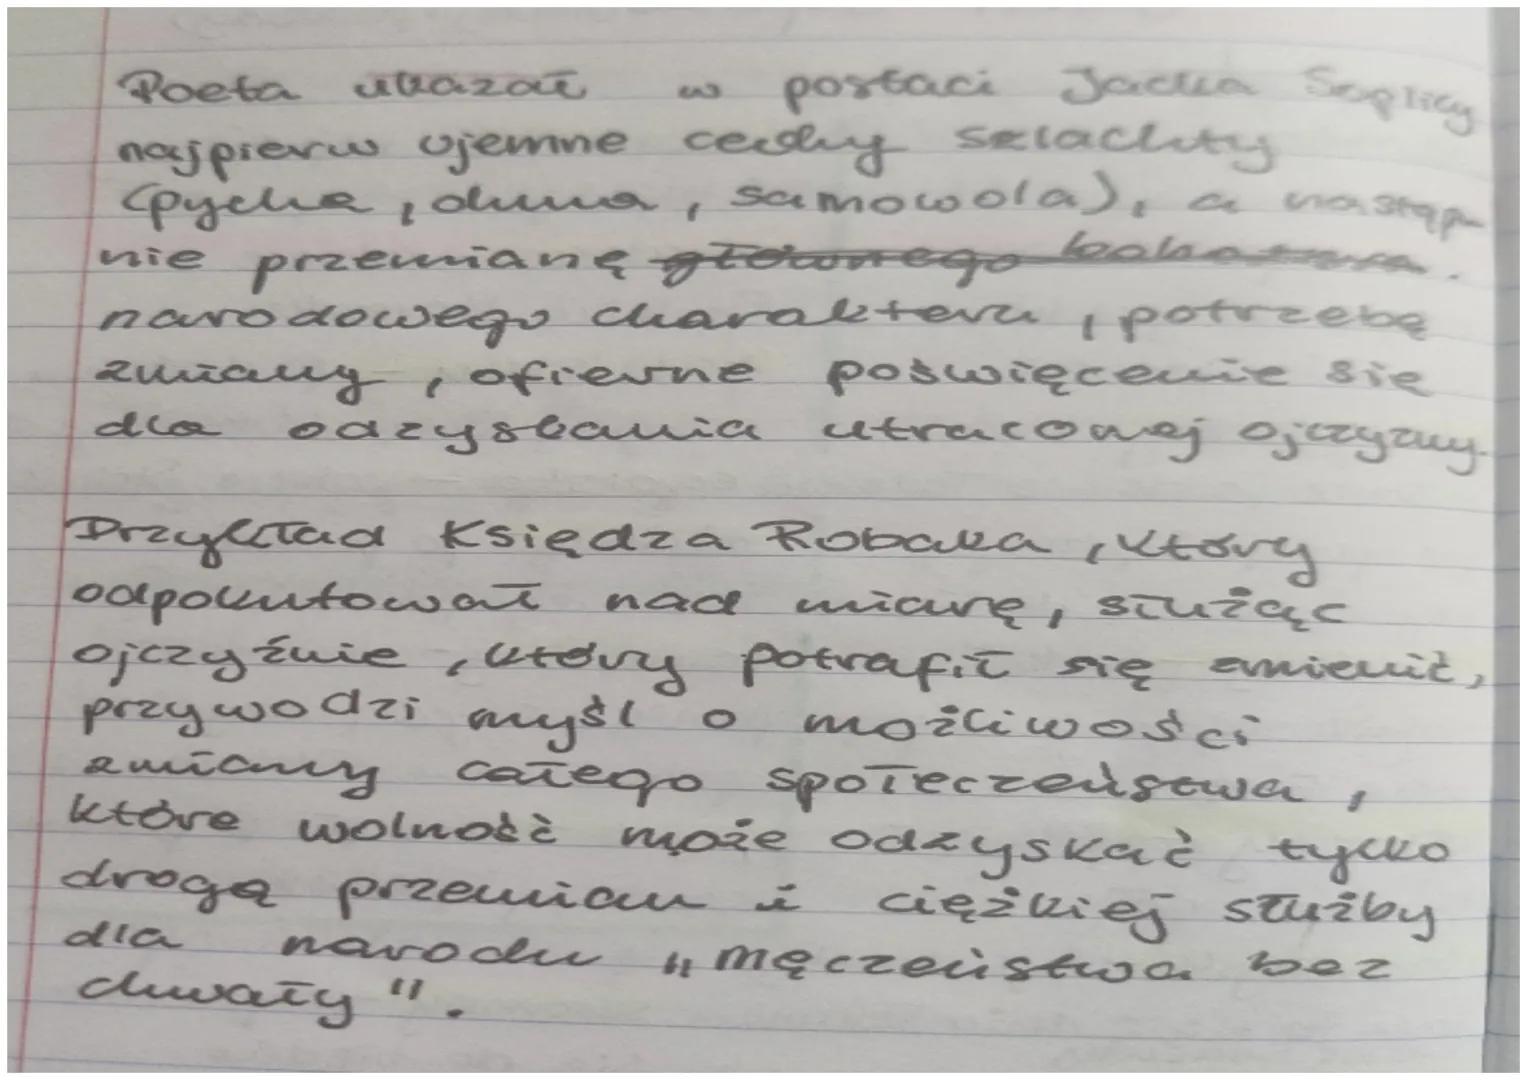 Poeta ukazał w postaci Jacka Soplicy
najpierw ujemne cechy szlachty
(pycha, duma, samowola), a następ-
nie przemianę głównego bohatera.
narodowego charakteru, potrzebę
zmiany, ofierne poświęcenie się
dla odzyskania utraconej ojczyzny.
Przykład Księdza Robaka, który
odpokutował nad miarę, służąc
ojczyźnie, który potrafił się zmienić,
przywodzi myśl o możliwości
zmiany całego społeczeństwa,
które wolność może odzyskać tylko
drogą przemian i ciężkiej służby
dla narodu „męczeństwa bez
chwały".